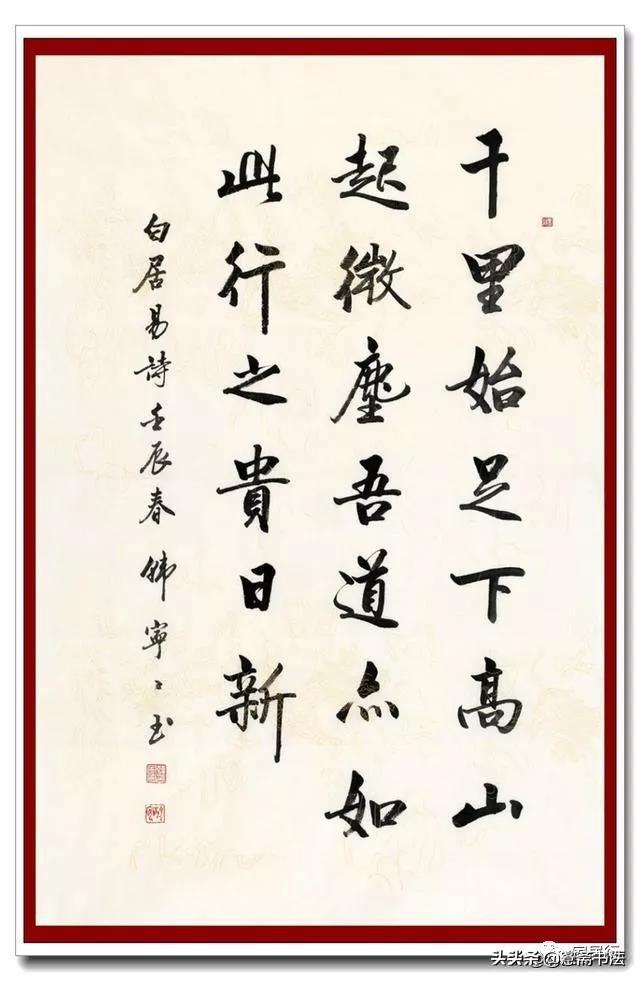 千里始足下高山
起微塵吾道亦如
此行之貴日新
白居易詩壬辰春韓寧〻书
头条 斋书法